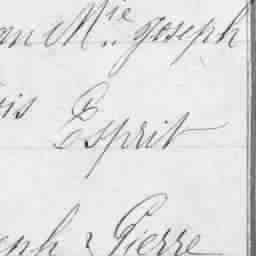 an M.ie Joseph
ois Esprit
eph & Pierre